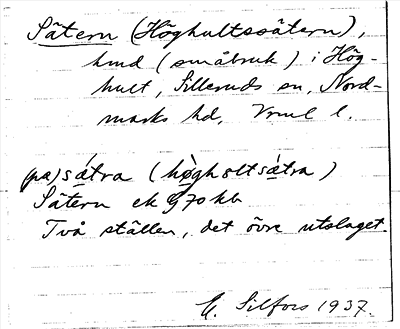 Sätern (Höghultssätern),
hmd (småbruk) i Hög-
hult, Silleruds sn, Nord-
marks hd, Vrml l.
(pa) sátra (hò̀gholtsátra)
Sätern ek G 70 kb
Två ställen, det övre utslaget.
E. Silfors 1937.